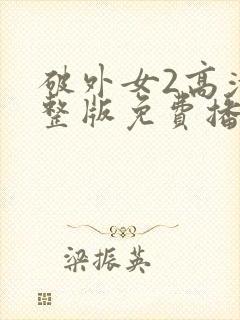 破外女2高清
整版免費播
梁振英